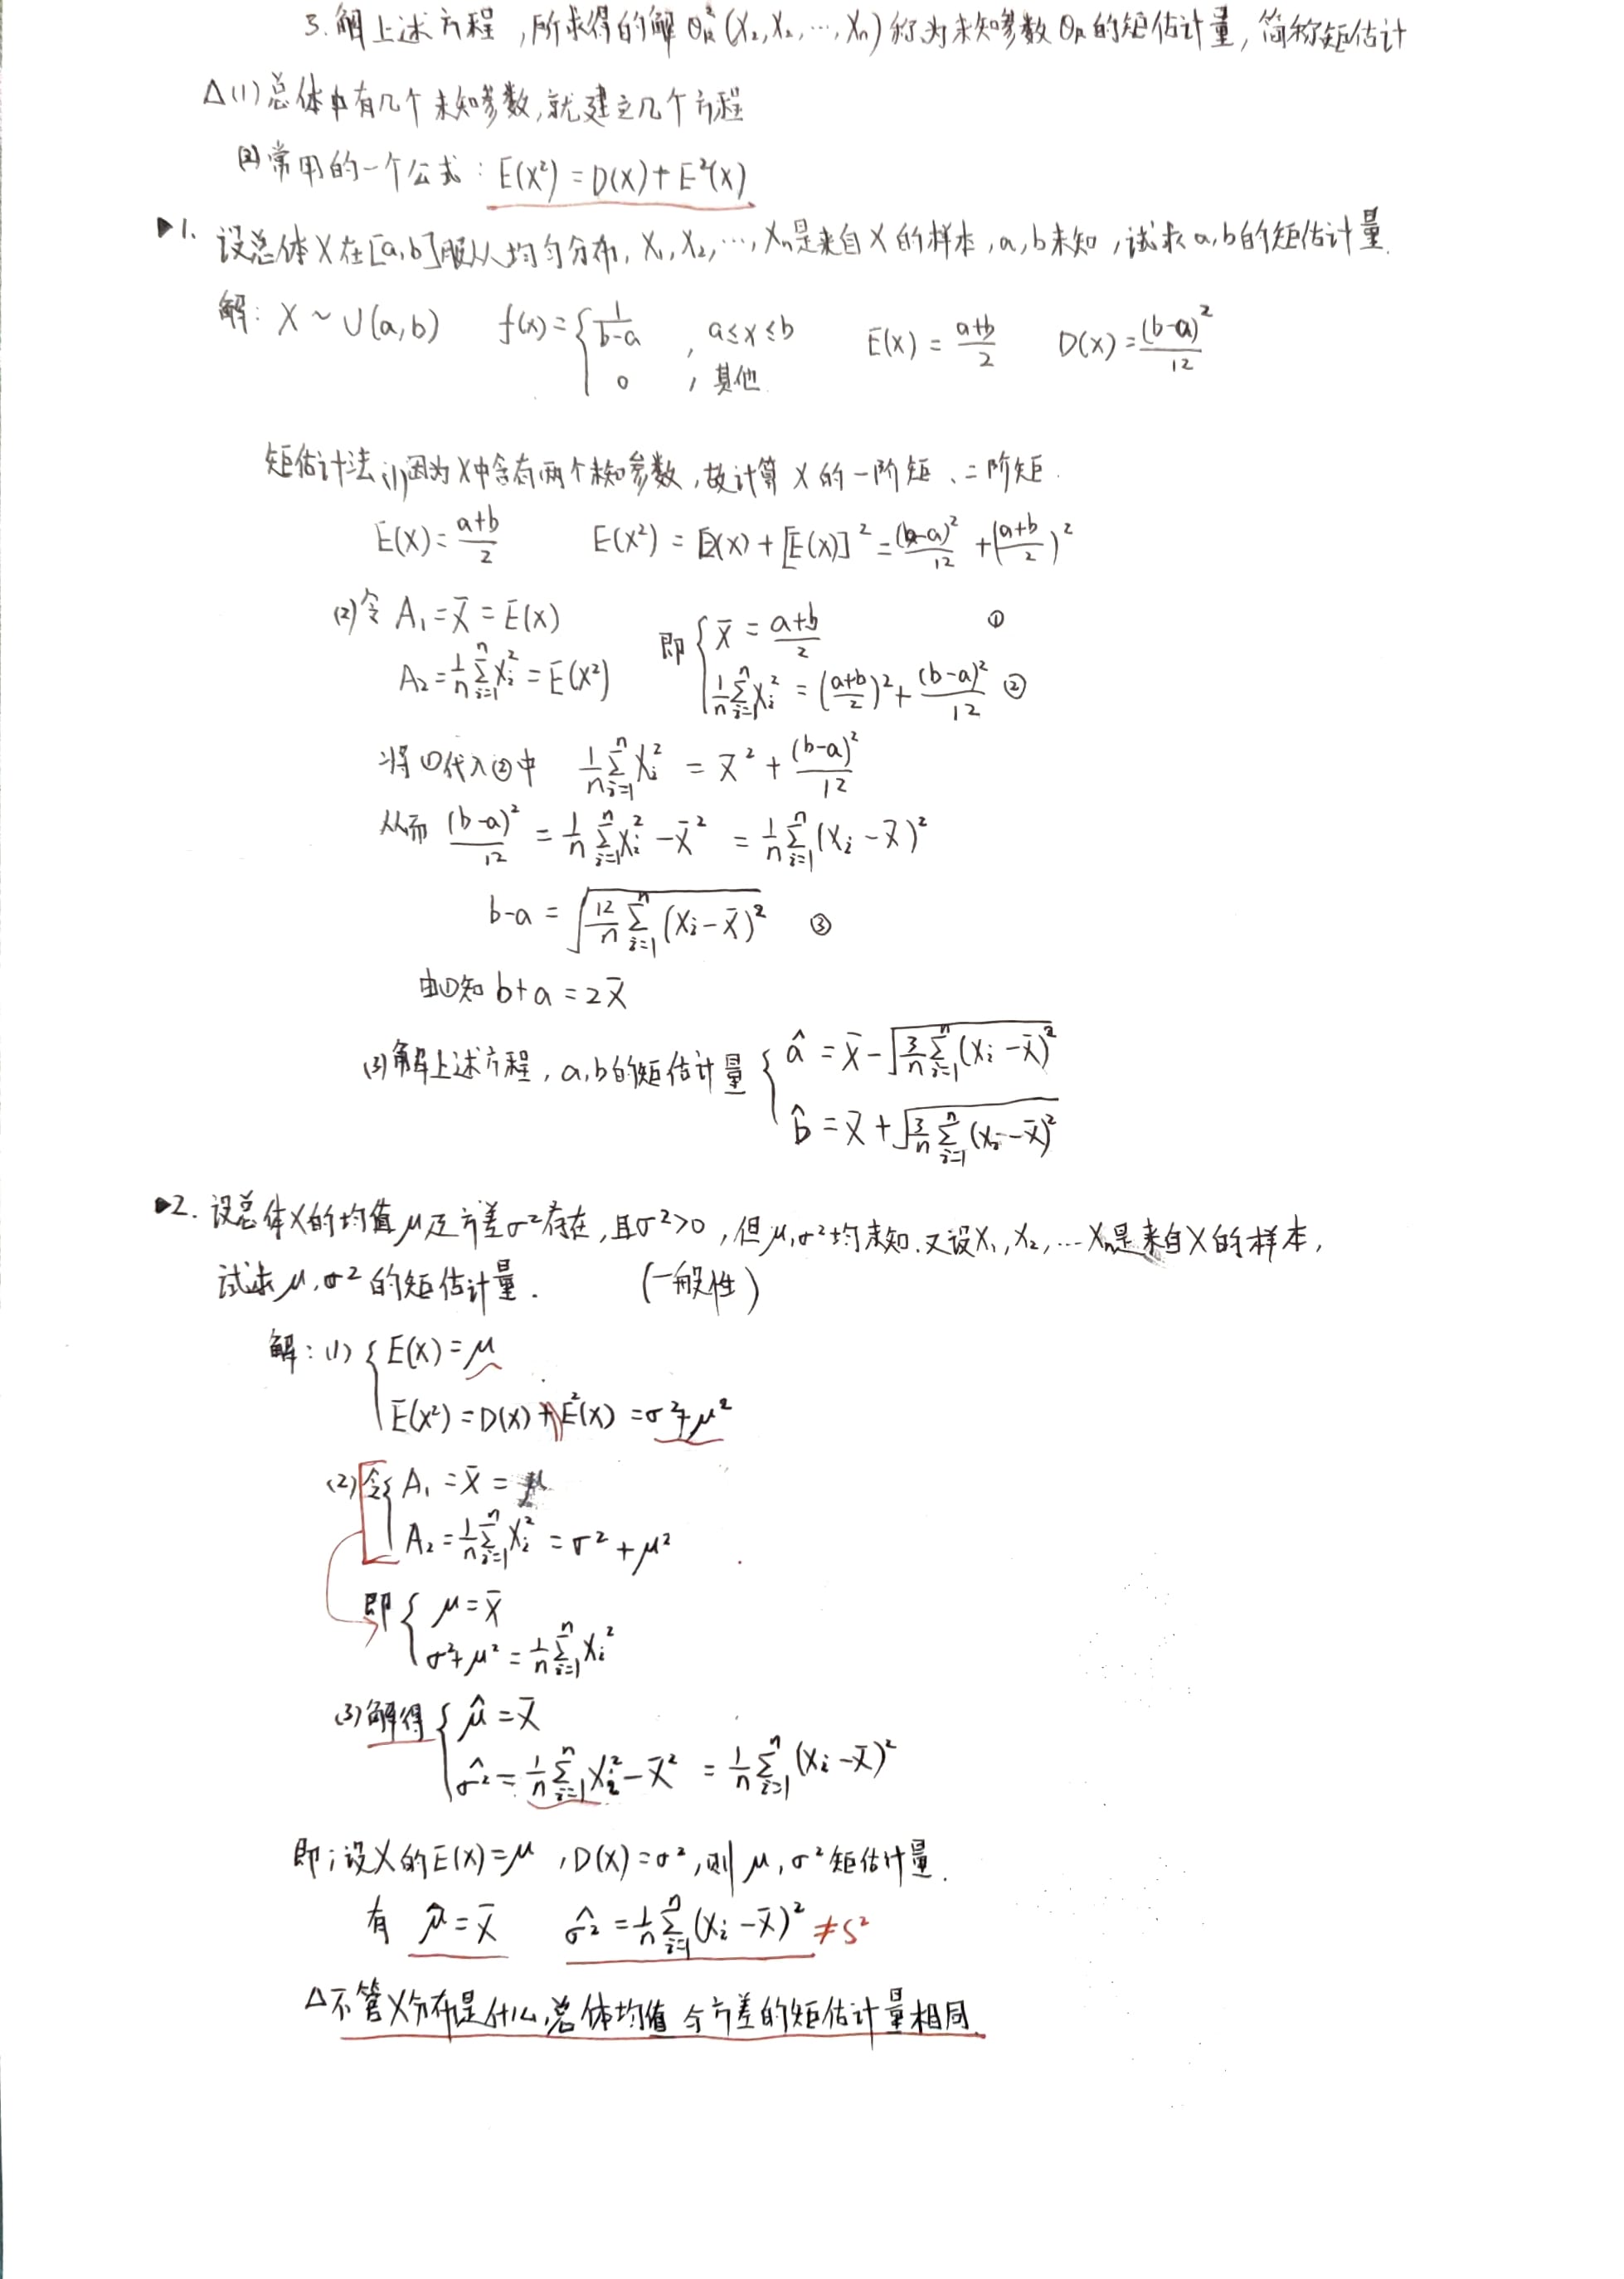 3.解上述方程,所求得的解 θ̂k(X₁,X₂,…,Xn)称为未知参数θk的矩估计量,简称矩估计
△(1)总体中有几个未知参数,就建立几个方程
(2)常用的一个公式:E(X²)=D(X)+E²(X)
▶1. 设总体X在[a,b]服从均匀分布,X₁,X₂,…,Xn是来自X的样本,a,b未知,试求a,b的矩估计量.
解:X~U(a,b) f(x)={1/(b-a) , a≤x≤b E(X)=(a+b)/2 D(X)=(b-a)²/12
0 ,其他
矩估计法:(1)因为X中含有两个未知参数,故计算X的一阶矩、二阶矩.
E(X)=(a+b)/2 E(X²)=D(X)+[E(X)]²=(b-a)²/12+((a+b)/2)²
(2)令 A₁=X̄=E(X) 即{X̄=(a+b)/2 ①
A₂=1/n ∑ᵢ₌₁ⁿ Xᵢ²=E(X²) 1/n ∑ᵢ₌₁ⁿ Xᵢ²=((a+b)/2)²+(b-a)²/12 ②
将①代入②中 1/n ∑ᵢ₌₁ⁿ Xᵢ²=X̄²+(b-a)²/12
从而 (b-a)²/12=1/n ∑ᵢ₌₁ⁿ Xᵢ²-X̄²=1/n ∑ᵢ₌₁ⁿ (Xᵢ-X̄)²
b-a=√(12/n ∑ᵢ₌₁ⁿ (Xᵢ-X̄)²) ③
由①知 b+a=2X̄
(3)解上述方程,a,b的矩估计量{â=X̄-√(3/n ∑ᵢ₌₁ⁿ (Xᵢ-X̄)²)
b̂=X̄+√(3/n ∑ᵢ₌₁ⁿ (Xᵢ-X̄)²)
▶2. 设总体X的均值μ及方差σ²存在,且σ²>0,但μ,σ²均未知.又设X₁,X₂,…Xn是来自X的样本,
试求μ,σ²的矩估计量. (一般性)
解:(1){E(X)=μ
E(X²)=D(X)+E²(X)=σ²+μ²
(2)令{A₁=X̄=μ
A₂=1/n ∑ᵢ₌₁ⁿ Xᵢ²=σ²+μ²
即{μ=X̄
σ²+μ²=1/n ∑ᵢ₌₁ⁿ Xᵢ²
(3)解得{μ̂=X̄
σ̂²=1/n ∑ᵢ₌₁ⁿ Xᵢ²-X̄²=1/n ∑ᵢ₌₁ⁿ (Xᵢ-X̄)²
即:设X的E(X)=μ,D(X)=σ²,则μ,σ²矩估计量.
有 μ̂=X̄ σ̂²=1/n ∑ᵢ₌₁ⁿ (Xᵢ-X̄)²≠S²
△不管X分布是什么,总体均值与方差的矩估计量相同.